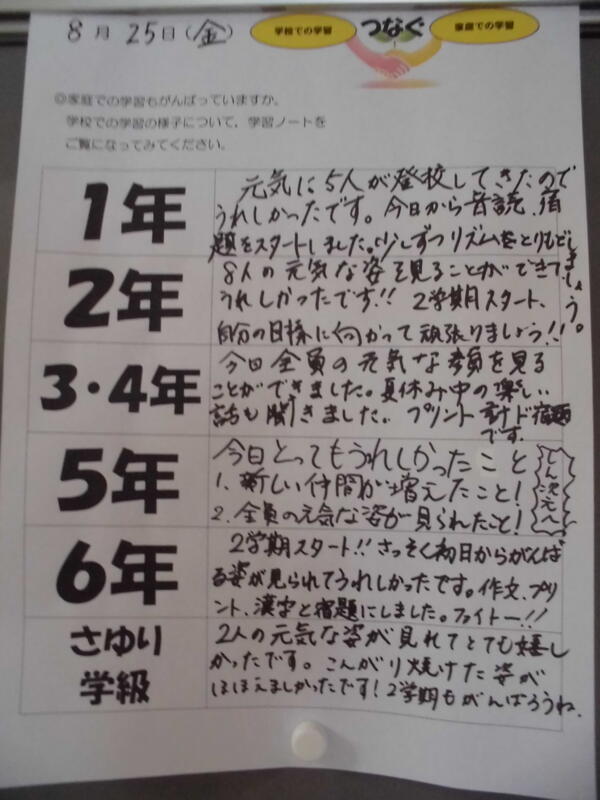 8月 25日(金)
学校での学習
つなぐ
家庭での学習
◎家庭での学習もがんばっていますか。
学校での学習の様子について、学習ノートを
ご覧になってみてください。
1年
元気に5人が登校してきたので
うれしかったです。今日から音読、宿
題をスタートしました。少しずつリズムをとりもどし
ましょう。
2年
8人の元気な姿を見ることができて、
うれしかったです!! 2学期スタート、
自分の目標に向かって頑張りましょう!!
3・4年
今日全員の元気な顔を見る
ことができました。夏休み中の楽しい
話も聞きました。 プリント 計ド宿題
です。
5年
今日とってもうれしかったこと
1. 新しい仲間が増えたこと!
2. 全員の元気な姿が見られたこと!
6年
2学期スタート!! さっそく初日からがんば
る姿が見られてうれしかったです。作文、プリ
ント、漢字と宿題にしました。ファイトー!!
さゆり
学級
2人の元気な姿が見れてとても嬉し
かったです。こんがり焼けた姿が
ほほえましかったです!2学期もがんばろうね。